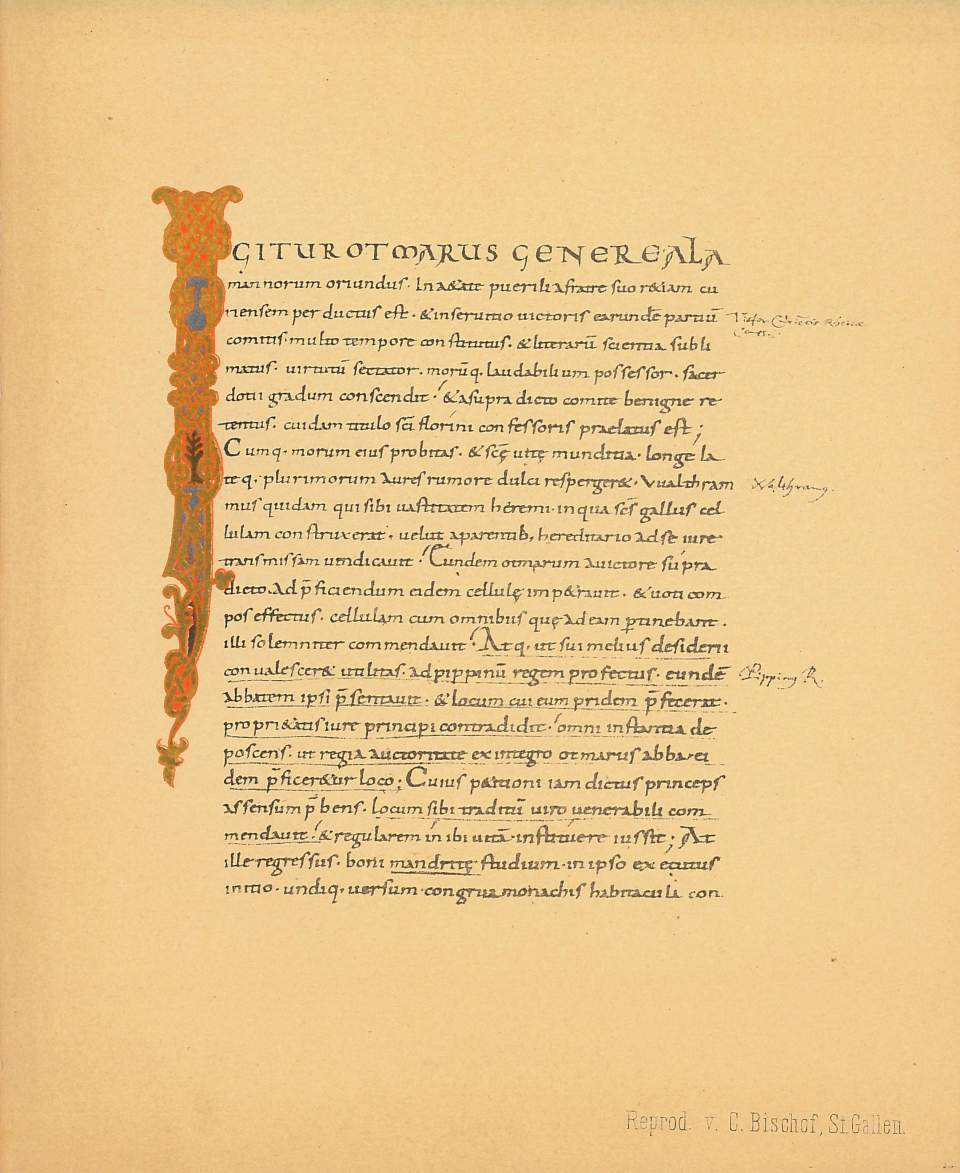 IGITUR OTMARUS GENERE ALA
mannorum oriundus. In aetate puerili a fratre suo r&iam cu
riensem per ductus est. & inseruitio uictoris earundē partiū
comitis. multo tempore constitutus. & literarū scientia subli
matus. uirtutū sectator. morūq. laudabilium possessor. sacer
dotii gradum conscendit. & a supra dicto comite benigne re-
tentus. cuidam titulo sc̄i florini confessoris praelatus est;
Cumq. morum eius probitas. & scę uitę munditia. longe la
teq. plurimorum aures rumore dulci resperger&. Vualthram
mus quidam qui sibi uastitatem heremi. in qua sc̄s gallus cel
lulam construxerat. uelut aparentib, hereditario ad se iure
transmissam uendicauit. Eundem otmarum auictore supra
dicto. ad p̄ficiendum eidem cellulę imp&rauit. & uoti com
pos effectus. cellulam cum omnibus quę ad eam ꝑtinebant.
illi solemniter commendauit. Atq. ut sui melius desiderii
conualescer& utilitas. ad pippinū regem profectus. eundē
abbatem ipsi p̄sentauit. & locum cui eum pridem p̄fecerat.
propri&atis iure principi contradidit. omni instantia de
poscens. ut regia auctoritate ex integro otmarus abba ei
dem p̄ficer&ur loco; Cuius p&itioni iam dictus princeps
assensum p̄bens. locum sibi traditū uiro uenerabili com
mendauit. & regularem inibi uitā. instituere iussit; At
ille regressus. boni mandritę studium. in ipso executus
initio. undiq. uersum congrua monachis habitacula con
Victor
Comes.
Walthramus.
Pippinus R.
Reprod. v. C. Bischof, St. Gallen.